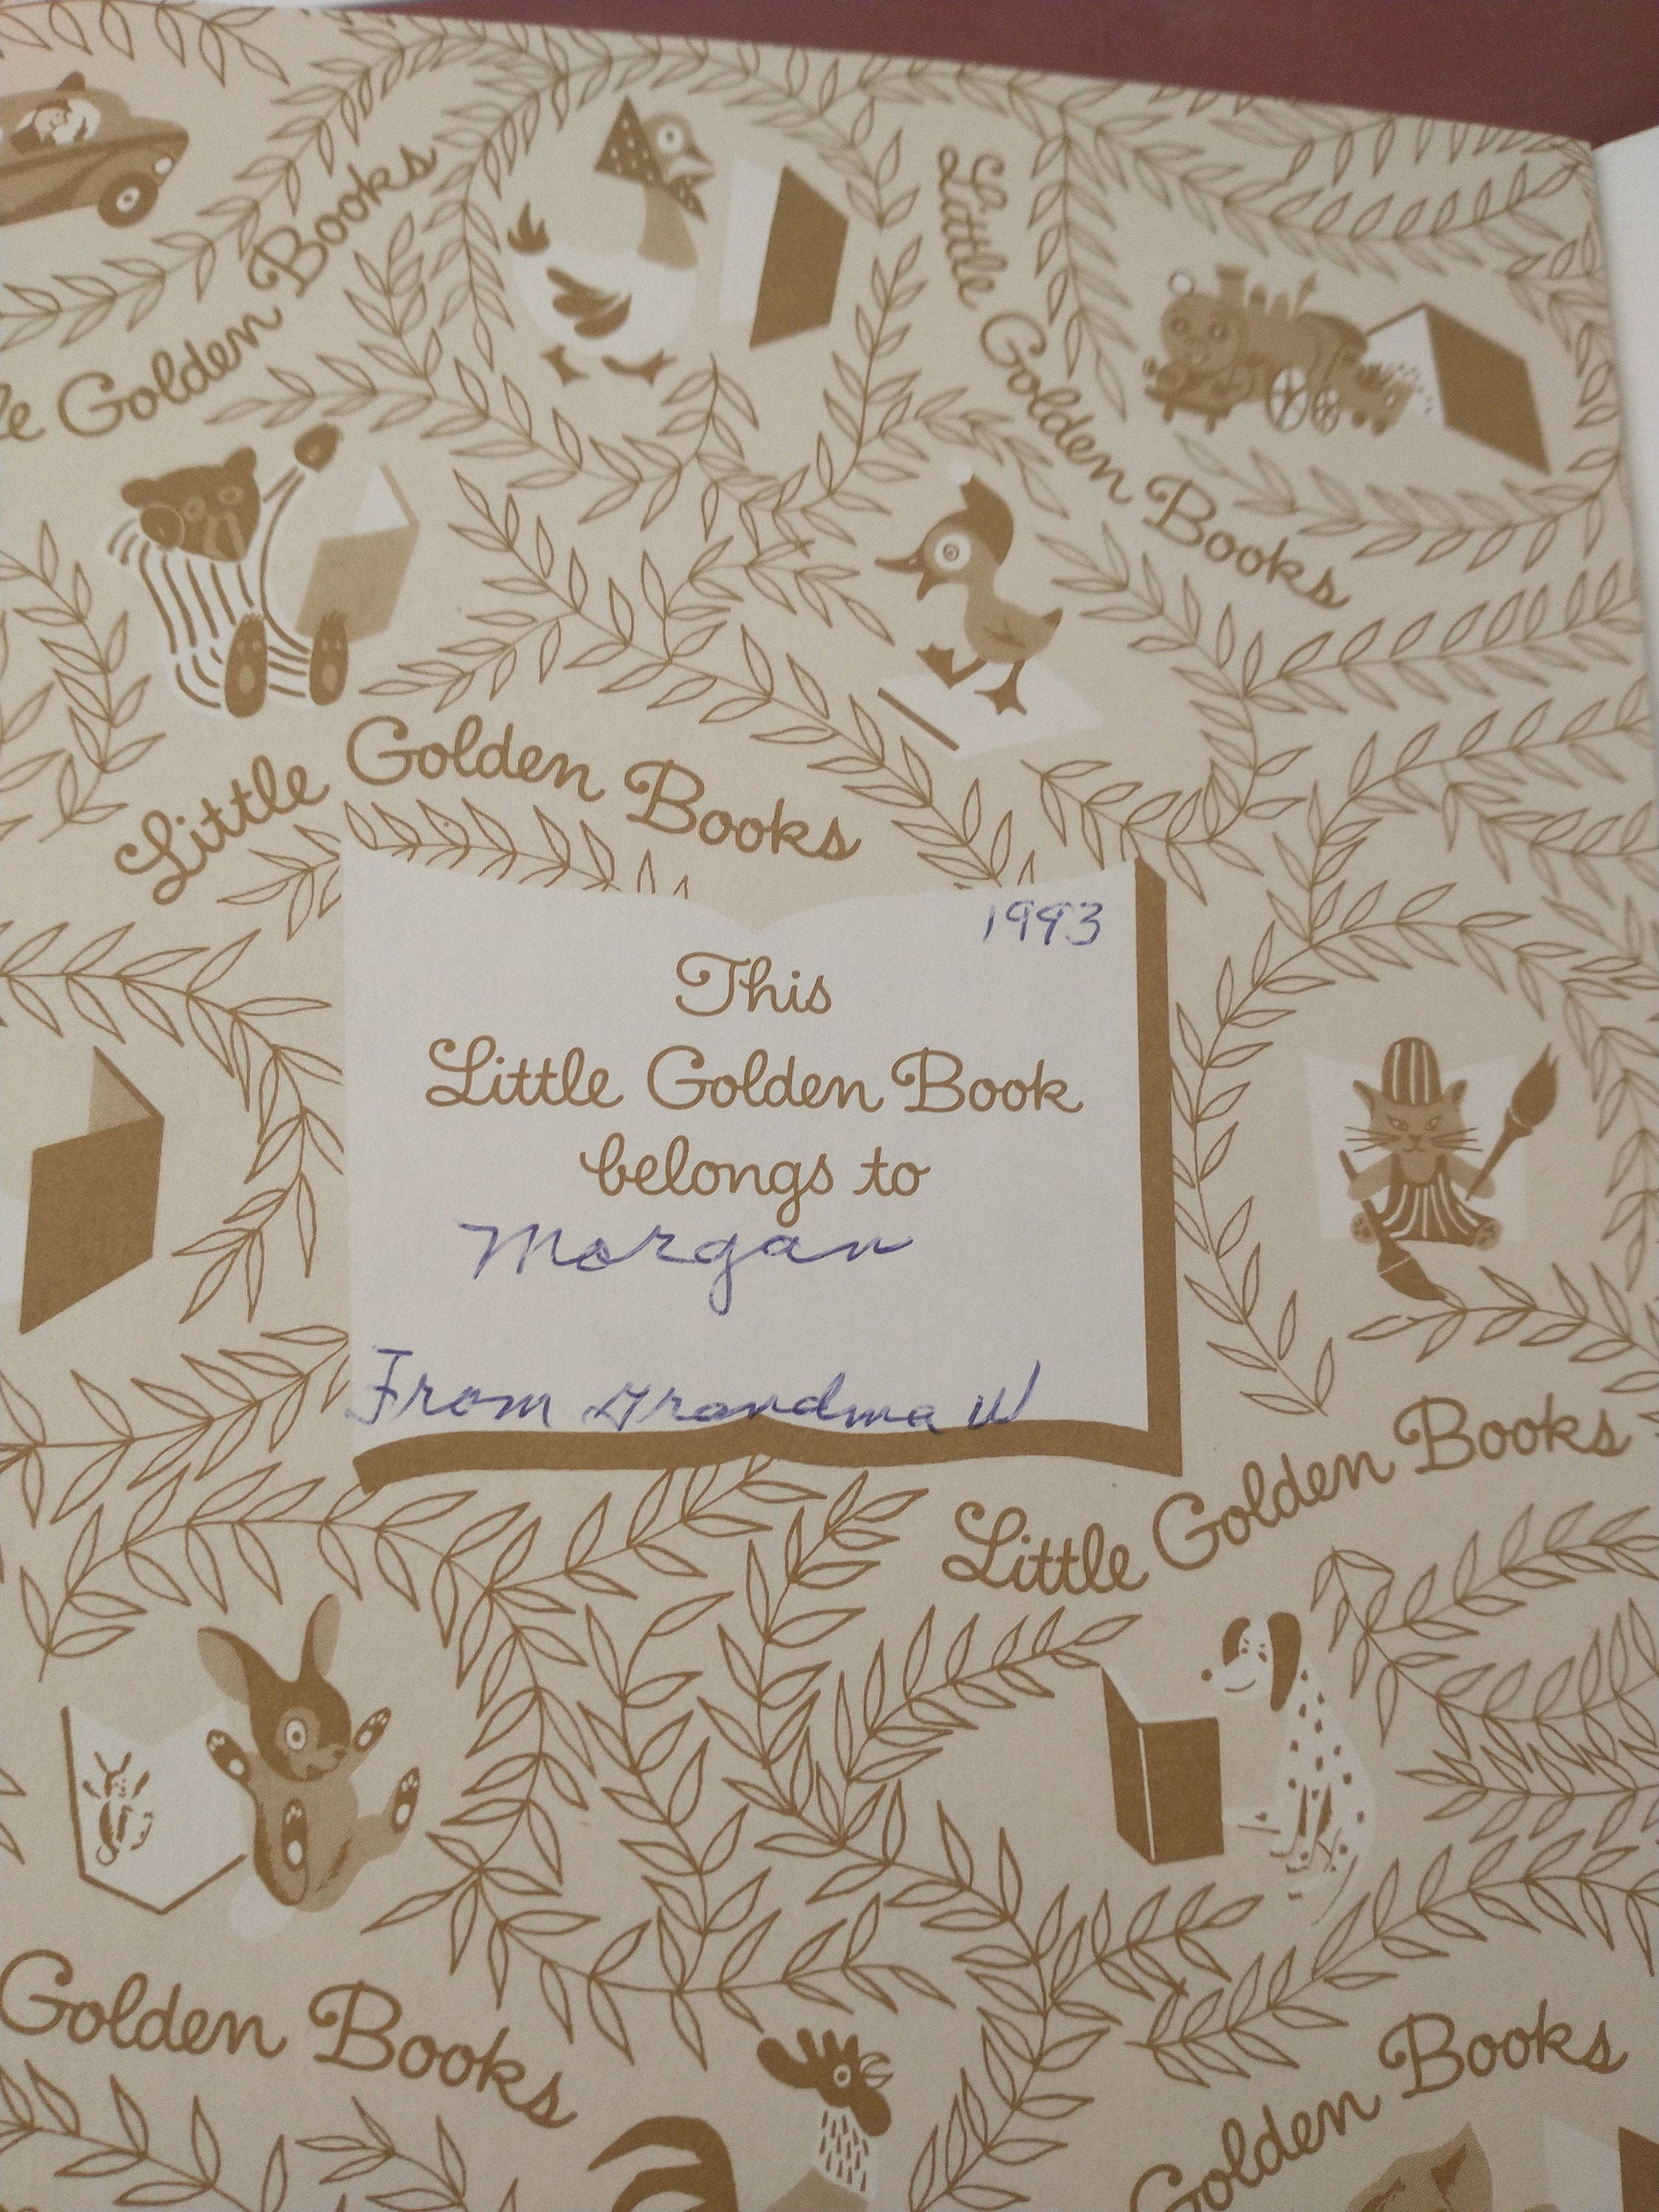 le Golden Books
Little Golden Books
Little Golden Books
1993
This
Little Golden Book
belongs to
Morgan
From Grandma W
Little Golden Books
Golden Books
Golden Books